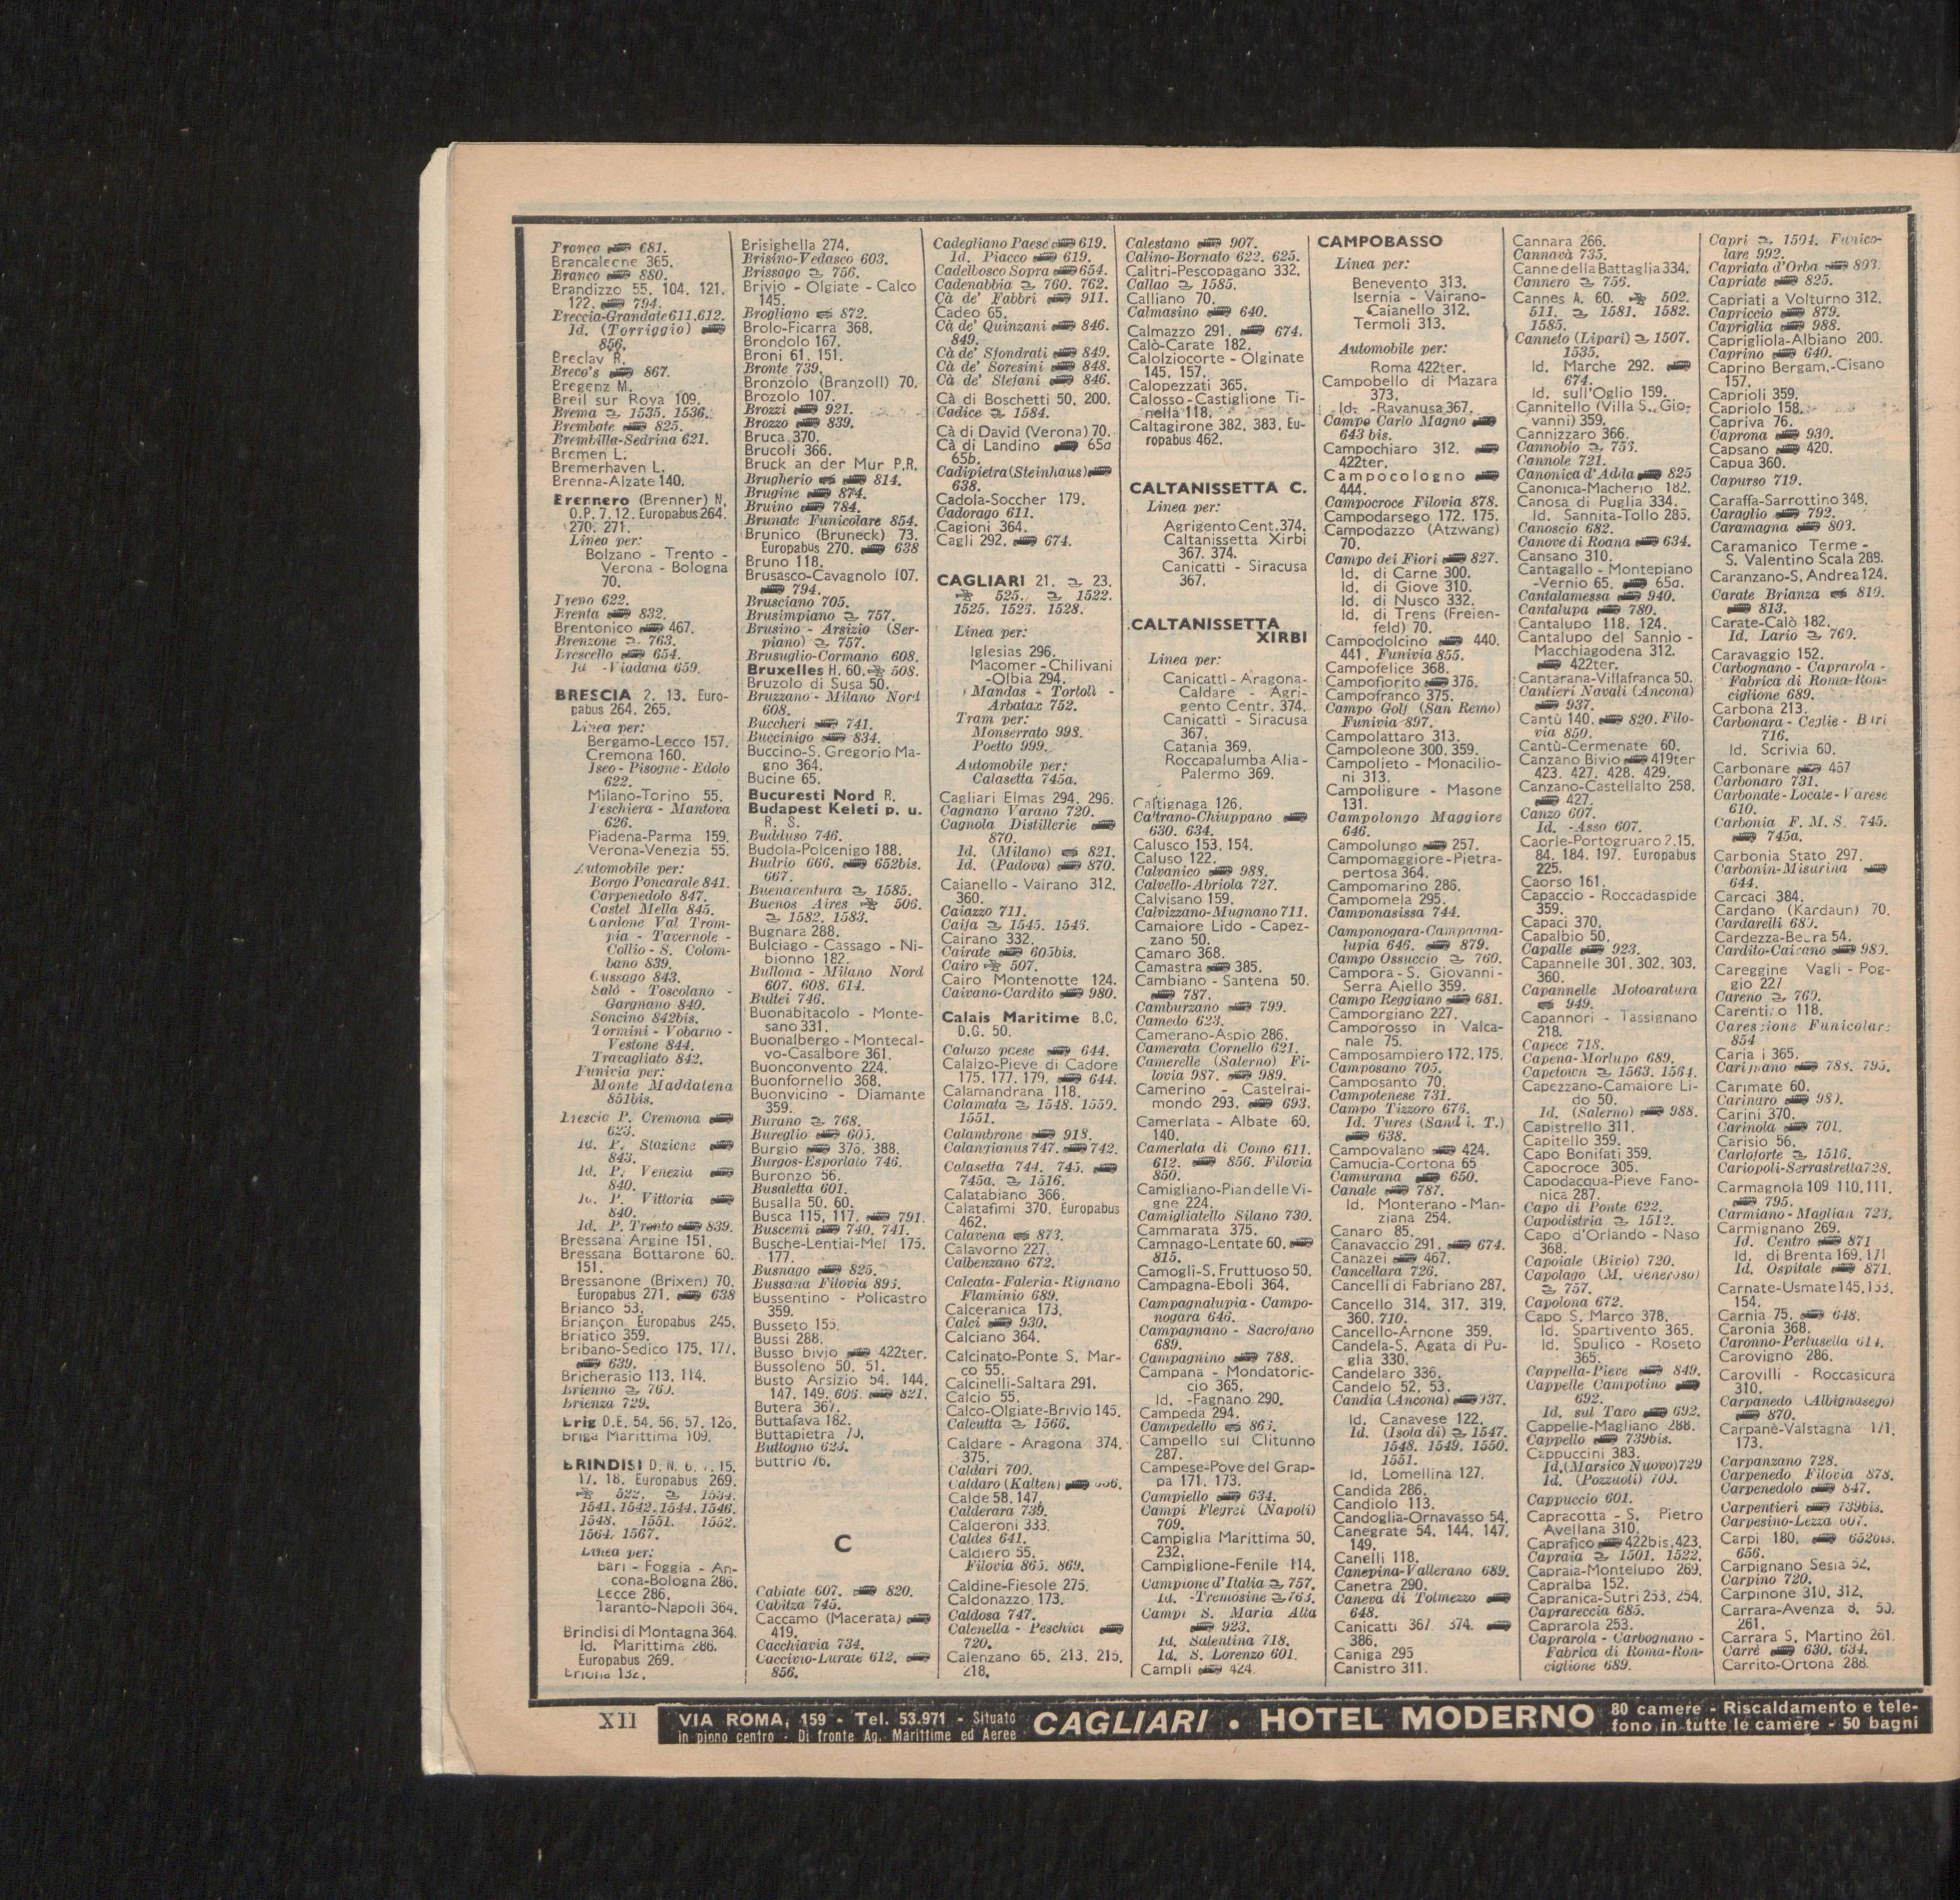 Pronco 681.
Brancaleone 365.
Branco 880.
Brandizzo 55. 104. 121.
122. 794.
Breccia-Grandate 611.612.
Id. (Torriggio)
856.
Breclav R.
Breco's 867.
Bregenz M.
Breil sur Roya 109.
Brema 1535. 1536.
Brembate 825.
Brembilla-Sedrina 621.
Bremen L.
Bremerhaven L.
Brenna-Alzate 140.
Brennero (Brenner) N.
O.P. 7. 12. Europabus 264.
270. 271.
Linea per:
Bolzano - Trento -
Verona - Bologna
70.
Breno 622.
Brenta 832.
Brentonico 467.
Brenzone 763.
Brescello 654.
Id. -Viadana 659.
BRESCIA 2. 13. Euro-
pabus 264. 265.
Linea per:
Bergamo-Lecco 157.
Cremona 160.
Iseo - Pisogne - Edolo
622.
Milano-Torino 55.
Peschiera - Mantova
626.
Piadena-Parma 159.
Verona-Venezia 55.
Automobile per:
Borgo Poncarale 841.
Carpenedolo 847.
Castel Mella 845.
Gardone Val Trom-
pia - Tavernole -
Collio - S. Colom-
bano 839.
Cussago 843.
Salò - Toscolano -
Gargnano 840.
Soncino 842bis.
Tormini - Vobarno -
Vestone 844.
Travagliato 842.
Funivia per:
Monte Maddalena
851bis.
Brescia P. Cremona
623.
Id. P. Stazione
843.
Id. P. Venezia
840.
Id. P. Vittoria
840.
Id. P. Trento 839.
Bressana Argine 151.
Bressana Bottarone 60.
151.
Bressanone (Brixen) 70.
Europabus 271. 638
Brianco 53.
Briançon Europabus 245.
Briatico 359.
Bribano-Sedico 175. 177.
639.
Bricherasio 113. 114.
Brienno 760.
Brienza 729.
Brig D.E. 54. 56. 57. 126.
Briga Marittima 109.
BRINDISI D. N. 6. 7. 15.
17. 18. Europabus 269.
522. 1534.
1541. 1542. 1544. 1546.
1548. 1551. 1552.
1564. 1567.
Linea per:
Bari - Foggia - An-
cona-Bologna 286.
Lecce 286.
Taranto-Napoli 364.
Brindisi di Montagna 364.
Id. Marittima 286.
Europabus 269.
Briona 132.
Brisighella 274.
Brisino-Vedasco 603.
Brissago 756.
Brivio - Olgiate - Calco
145.
Brogliano 872.
Brolo-Ficarra 368.
Brondolo 167.
Broni 61. 151.
Bronte 739.
Bronzolo (Branzoll) 70.
Brozolo 107.
Brozzi 921.
Brozzo 839.
Bruca 370.
Brucoli 366.
Bruck an der Mur P.R.
Brugherio 814.
Brugine 874.
Bruino 784.
Brunate Funicolare 854.
Brunico (Bruneck) 73.
Europabus 270. 638
Bruno 118.
Brusasco-Cavagnolo 107.
794.
Brusciano 705.
Brusimpiano 757.
Brusino - Arsizio (Ser-
piano) 757.
Brusuglio-Cormano 608.
Bruxelles H. 60. 508.
Bruzolo di Susa 50.
Bruzzano - Milano Nord
608.
Buccheri 741.
Buccinigo 834.
Buccino-S. Gregorio Ma-
gno 364.
Bucine 65.
Bucuresti Nord R.
Budapest Keleti p. u.
R. S.
Budduso 746.
Budola-Polcenigo 188.
Budrio 666. 652bis.
667.
Buenaventura 1585.
Buenos Aires 506.
1582. 1583.
Bugnara 288.
Bulciago - Cassago - Ni-
bionno 182.
Bullona - Milano Nord
607. 608. 614.
Bultei 746.
Buonabitacolo - Monte-
sano 331.
Buonalbergo - Montecal-
vo-Casalbore 361.
Buonconvento 224.
Buonfornello 368.
Buonvicino - Diamante
359.
Burano 768.
Bureglio 605.
Burgio 376. 388.
Burgos-Esporlato 746.
Buronzo 56.
Busaletta 601.
Busalla 50. 60.
Busca 115. 117. 791.
Buscemi 740. 741.
Busche-Lentiai-Mel 175.
177.
Busnago 825.
Bussana Filovia 895.
Bussentino - Policastro
359.
Busseto 155.
Bussi 288.
Busso bivio 422ter.
Bussoleno 50. 51.
Busto Arsizio 54. 144.
147. 149. 606. 821.
Butera 367.
Buttafava 182.
Buttapietra 70.
Buttogno 623.
Buttrio 76.
C
Cabiate 607. 820.
Cabitza 745.
Caccamo (Macerata)
419.
Cacchiavia 734.
Caccivio-Lurate 612.
856.
Cadegliano Paese 619.
Id. Piacco 619.
Cadelbosco Sopra 654.
Cadenabbia 760. 762.
Cà de' Fabbri 911.
Cadeo 65.
Cà de' Quinzani 846.
849.
Cà de' Sfondrati 849.
Cà de' Soresini 848.
Cà de' Stefani 846.
Cà di Boschetti 50. 200.
Cadice 1584.
Cà di David (Verona) 70.
Cà di Landino 65a
65b.
Cadipietra (Steinhaus)
638.
Cadola-Soccher 179.
Cadorago 611.
Cagioni 364.
Cagli 292. 674.
CAGLIARI 21. 23.
525. 1522.
1525. 1526. 1528.
Linea per:
Iglesias 296.
Macomer - Chilivani
-Olbia 294.
Mandas - Tortolì -
Arbatax 752.
Tram per:
Monserrato 998.
Poetto 999.
Automobile per:
Calasetta 745a.
Cagliari Elmas 294. 296.
Cagnano Varano 720.
Cagnola Distillerie
870.
Id. (Milano) 821.
Id. (Padova) 870.
Caianello - Vairano 312.
360.
Caiazzo 711.
Caifa 1545. 1546.
Cairano 332.
Cairate 605bis.
Cairo 507.
Cairo Montenotte 124.
Caivano-Cardito 980.
Calais Maritime B.C.
D.G. 50.
Calalzo paese 644.
Calalzo-Pieve di Cadore
175. 177. 179. 644.
Calamandrana 118.
Calamata 1548. 1550.
1551.
Calambrone 918.
Calangianus 747. 742.
Calasetta 744. 745.
745a. 1516.
Calatabiano 366.
Calatafimi 370. Europabus
462.
Calavena 873.
Calavorno 227.
Calbenzano 672.
Calcata - Faleria - Rignano
Flaminio 689.
Calceranica 173.
Calci 930.
Calciano 364.
Calcinato-Ponte S. Mar-
co 55.
Calcinelli-Saltara 291.
Calcio 55.
Calco-Olgiate-Brivio 145.
Calcutta 1566.
Caldare - Aragona 374.
375.
Caldari 700.
Caldaro (Kaltern) 636.
Calde 58. 147.
Calderara 739.
Calderoni 333.
Caldes 641.
Caldiero 55.
Filovia 865. 869.
Caldine-Fiesole 275.
Caldonazzo 173.
Caldosa 747.
Calenella - Peschici
720.
Calenzano 65. 213. 215.
218.
Calestano 907.
Calino-Bornato 622. 625.
Calitri-Pescopagano 332.
Callao 1585.
Calliano 70.
Calmasino 640.
Calmazzo 291. 674.
Calò-Carate 182.
Calolziocorte - Olginate
145. 157.
Calopezzati 365.
Calosso-Castiglione Ti-
nella 118.
Caltagirone 382. 383. Eu-
ropabus 462.
CALTANISSETTA C.
Linea per:
Agrigento Cent. 374.
Caltanissetta Xirbi
367. 374.
Canicattì - Siracusa
367.
CALTANISSETTA
XIRBI
Linea per:
Canicattì - Aragona-
Caldare - Agri-
gento Centr. 374.
Canicattì - Siracusa
367.
Catania 369.
Roccapalumba Alia -
Palermo 369.
Caltignaga 126.
Caltrano-Chiuppano
630. 634.
Calusco 153. 154.
Caluso 122.
Calvanico 988.
Calvello-Abriola 727.
Calvisano 159.
Calvizzano-Mugnano 711.
Camaiore Lido - Capez-
zano 50.
Camaro 368.
Camastra 385.
Cambiano - Santena 50.
787.
Camburzano 799.
Camedo 623.
Camerano-Aspio 286.
Camerata Cornello 621.
Camerelle (Salerno) Fi-
lovia 987. 989.
Camerino - Castelrai-
mondo 293. 693.
Camerlata - Albate 60.
140.
Camerlata di Como 611.
612. 856. Filovia
850.
Camigliano-Pian delle Vi-
gne 224.
Camigliatello Silano 730.
Cammarata 375.
Camnago-Lentate 60.
815.
Camogli-S. Fruttuoso 50.
Campagna-Eboli 364.
Campagnalupia - Campo-
nogara 646.
Campagnano - Sacrofano
689.
Campagnino 788.
Campana - Mondatoric-
cio 365.
Id. -Fagnano 290.
Campeda 294.
Campedello 863.
Campello sul Clitunno
287.
Campese-Pove del Grap-
pa 171. 173.
Campiello 634.
Campi Flegrei (Napoli)
709.
Campiglia Marittima 50.
232.
Campiglione-Fenile 114.
Campione d'Italia 757.
Id. -Tremosine 763.
Campi S. Maria Alla
923.
Id. Salentina 718.
Id. S. Lorenzo 601.
Campli 424.
CAMPOBASSO
Linea per:
Benevento 313.
Isernia - Vairano-
Caianello 312.
Termoli 313.
Automobile per:
Roma 422ter.
Campobello di Mazara
373.
Id. -Ravanusa 367.
Campo Carlo Magno
643 bis.
Campochiaro 312.
422ter.
Campocologno
444.
Campocroce Filovia 878.
Campodarsego 172. 175.
Campodazzo (Atzwang)
70.
Campo dei Fiori 827.
Id. di Carne 300.
Id. di Giove 310.
Id. di Nusco 332.
Id. di Trens (Freien-
feld) 70.
Campodolcino 440.
441. Funivia 855.
Campofelice 368.
Campofiorito 376.
Campofranco 375.
Campo Golf (San Remo)
Funivia 897.
Campolattaro 313.
Campoleone 300. 359.
Campolieto - Monacilio-
ni 313.
Campoligure - Masone
131.
Campolongo Maggiore
646.
Campolungo 257.
Campomaggiore-Pietra-
pertosa 364.
Campomarino 286.
Campomela 295.
Camponasissa 744.
Camponogara-Campagna-
lupia 646. 879.
Campo Ossuccio 760.
Campora - S. Giovanni -
Serra Aiello 359.
Campo Reggiano 681.
Camporgiano 227.
Camporosso in Valca-
nale 75.
Camposampiero 172. 175.
Camposano 705.
Camposanto 70.
Campotenese 731.
Campo Tizzoro 676.
Id. Tures (Sand i. T.)
638.
Campovalano 424.
Camucia-Cortona 65
Camurana 650.
Canale 787.
Id. Monterano - Man-
ziana 254.
Canaro 85.
Canavaccio 291. 674.
Canazei 467.
Cancellara 726.
Cancelli di Fabriano 287.
Cancello 314. 317. 319.
360. 710.
Cancello-Arnone 359.
Candela-S. Agata di Pu-
glia 330.
Candelaro 336.
Candelo 52. 53.
Candia (Ancona) 937.
Id. Canavese 122.
Id. (Isola di) 1547.
1548. 1549. 1550.
1551.
Id. Lomellina 127.
Candida 286.
Candiolo 113.
Candoglia-Ornavasso 54.
Canegrate 54. 144. 147.
149.
Canelli 118.
Canepina-Vallerano 689.
Canetra 290.
Caneva di Tolmezzo
648.
Canicattì 367 374.
386.
Caniga 295
Canistro 311.
Cannara 266.
Cannavà 735.
Canne della Battaglia 334.
Cannero 756.
Cannes A. 60. 502.
511. 1581. 1582.
1585.
Canneto (Lipari) 1507.
1535.
Id. Marche 292.
674.
Id. sull'Oglio 159.
Cannitello (Villa S. Gio-
vanni) 359.
Cannizzaro 366.
Cannobio 756.
Cannole 721.
Canonica d'Adda 825
Canonica-Macherio 182.
Canosa di Puglia 334.
Id. Sannita-Tollo 285.
Canoscio 682.
Canove di Roana 634.
Cansano 310.
Cantagallo - Montepiano
-Vernio 65. 65a.
Cantalamessa 940.
Cantalupa 780.
Cantalupo 118. 124.
Cantalupo del Sannio -
Macchiagodena 312.
422ter.
Cantarana-Villafranca 50.
Cantieri Navali (Ancona)
937.
Cantù 140. 820. Filo-
via 850.
Cantù-Cermenate 60.
Canzano Bivio 419ter
423. 427. 428. 429.
Canzano-Castellalto 258.
427.
Canzo 607.
Id. -Asso 607.
Caorle-Portogruaro 2.15.
84. 184. 197. Europabus
225.
Caorso 161.
Capaccio - Roccadaspide
359.
Capaci 370.
Capalbio 50.
Capalle 923.
Capannelle 301. 302. 303.
360.
Capannelle Motoaratura
949.
Capannori - Tassignano
218.
Capece 718.
Capena-Morlupo 689.
Capetown 1563. 1564.
Capezzano-Camaiore Li-
do 50.
Id. (Salerno) 988.
Capistrello 311.
Capitello 359.
Capo Bonifati 359.
Capocroce 305.
Capodacqua-Pieve Fano-
nica 287.
Capo di Ponte 622.
Capodistria 1512.
Capo d'Orlando - Naso
368.
Capoiale (Bivio) 720.
Capolago (M. Generoso)
757.
Capolona 672.
Capo S. Marco 378.
Id. Spartivento 365.
Id. Spulico - Roseto
365.
Cappella-Pieve 849.
Cappelle Campolino
692.
Id. sul Tavo 692.
Cappelle-Magliano 288.
Cappello 739bis.
Cappuccini 383.
Id.(Marsico Nuovo)729
Id. (Pozzuoli) 709.
Cappuccio 601.
Capracotta - S. Pietro
Avellana 310.
Caprafico 422bis.423.
Capraia 1501. 1522.
Capraia-Montelupo 269.
Capralba 152.
Capranica-Sutri 253. 254.
Caprareccia 685.
Caprarola 253.
Caprarola - Carbognano -
Fabrica di Roma-Ron-
ciglione 689.
Capri 1504. Funico-
lare 992.
Capriata d'Orba 803.
Capriate 825.
Capriati a Volturno 312.
Capriccio 879.
Capriglia 988.
Caprigliola-Albiano 200.
Caprino 640.
Caprino Bergam.-Cisano
157.
Caprioli 359.
Capriolo 158.
Capriva 76.
Caprona 930.
Capsano 420.
Capua 360.
Capurso 719.
Caraffa-Sarrottino 348.
Caraglio 792.
Caramagna 803.
Caramanico Terme -
S. Valentino Scala 288.
Caranzano-S. Andrea 124.
Carate Brianza 819.
813.
Carate-Calò 182.
Id. Lario 760.
Caravaggio 152.
Carbognano - Caprarola -
Fabrica di Roma-Ron-
ciglione 689.
Carbona 213.
Carbonara - Ceglie - Bari
716.
Id. Scrivia 60.
Carbonare 467
Carbonaro 731.
Carbonate-Locate-Varese
610.
Carbonia F. M. S. 745.
745a.
Carbonia Stato 297.
Carbonin-Misurina
644.
Carcaci 384.
Cardano (Kardaun) 70.
Cardarelli 680.
Cardezza-Beura 54.
Cardito-Caivano 980.
Careggine Vagli - Pog-
gio 227
Careno 760.
Carentino 118.
Caressione Funicolare
854
Cariati 365.
Carignano 788. 795.
Carimate 60.
Carinaro 980.
Carini 370.
Carinola 701.
Carisio 56.
Carloforte 1516.
Cariopoli-Serrastretta 728.
Carmagnola 109 110.111.
795.
Carmiano-Maglian 723.
Carmignano 269.
Id. Centro 871
Id. di Brenta 169. 171
Id. Ospitale 871.
Carnate-Usmate 145. 153.
154.
Carnia 75. 648.
Caronia 368.
Caronno-Pertusella 614.
Carovigno 286.
Carovilli - Roccasicura
310.
Carpanedo (Albignasego)
870.
Carpanè-Valstagna 171.
173.
Carpanzano 728.
Carpenedo Filovia 878.
Carpenedolo 847.
Carpentieri 739bis.
Carpesino-Lezza 607.
Carpi 180. 652bis.
656.
Carpignano Sesia 52.
Carpino 720.
Carpinone 310. 312.
Carrara-Avenza 8. 50.
261.
Carrara S. Martino 261.
Carrè 630. 634.
Carrito-Ortona 288.
XII
VIA ROMA, 159 - Tel. 53.971 - Situato
in pieno centro - Di fronte Ag. Marittime ed Aeree
CAGLIARI • HOTEL MODERNO
80 camere - Riscaldamento e tele-
fono in tutte le camere - 50 bagni